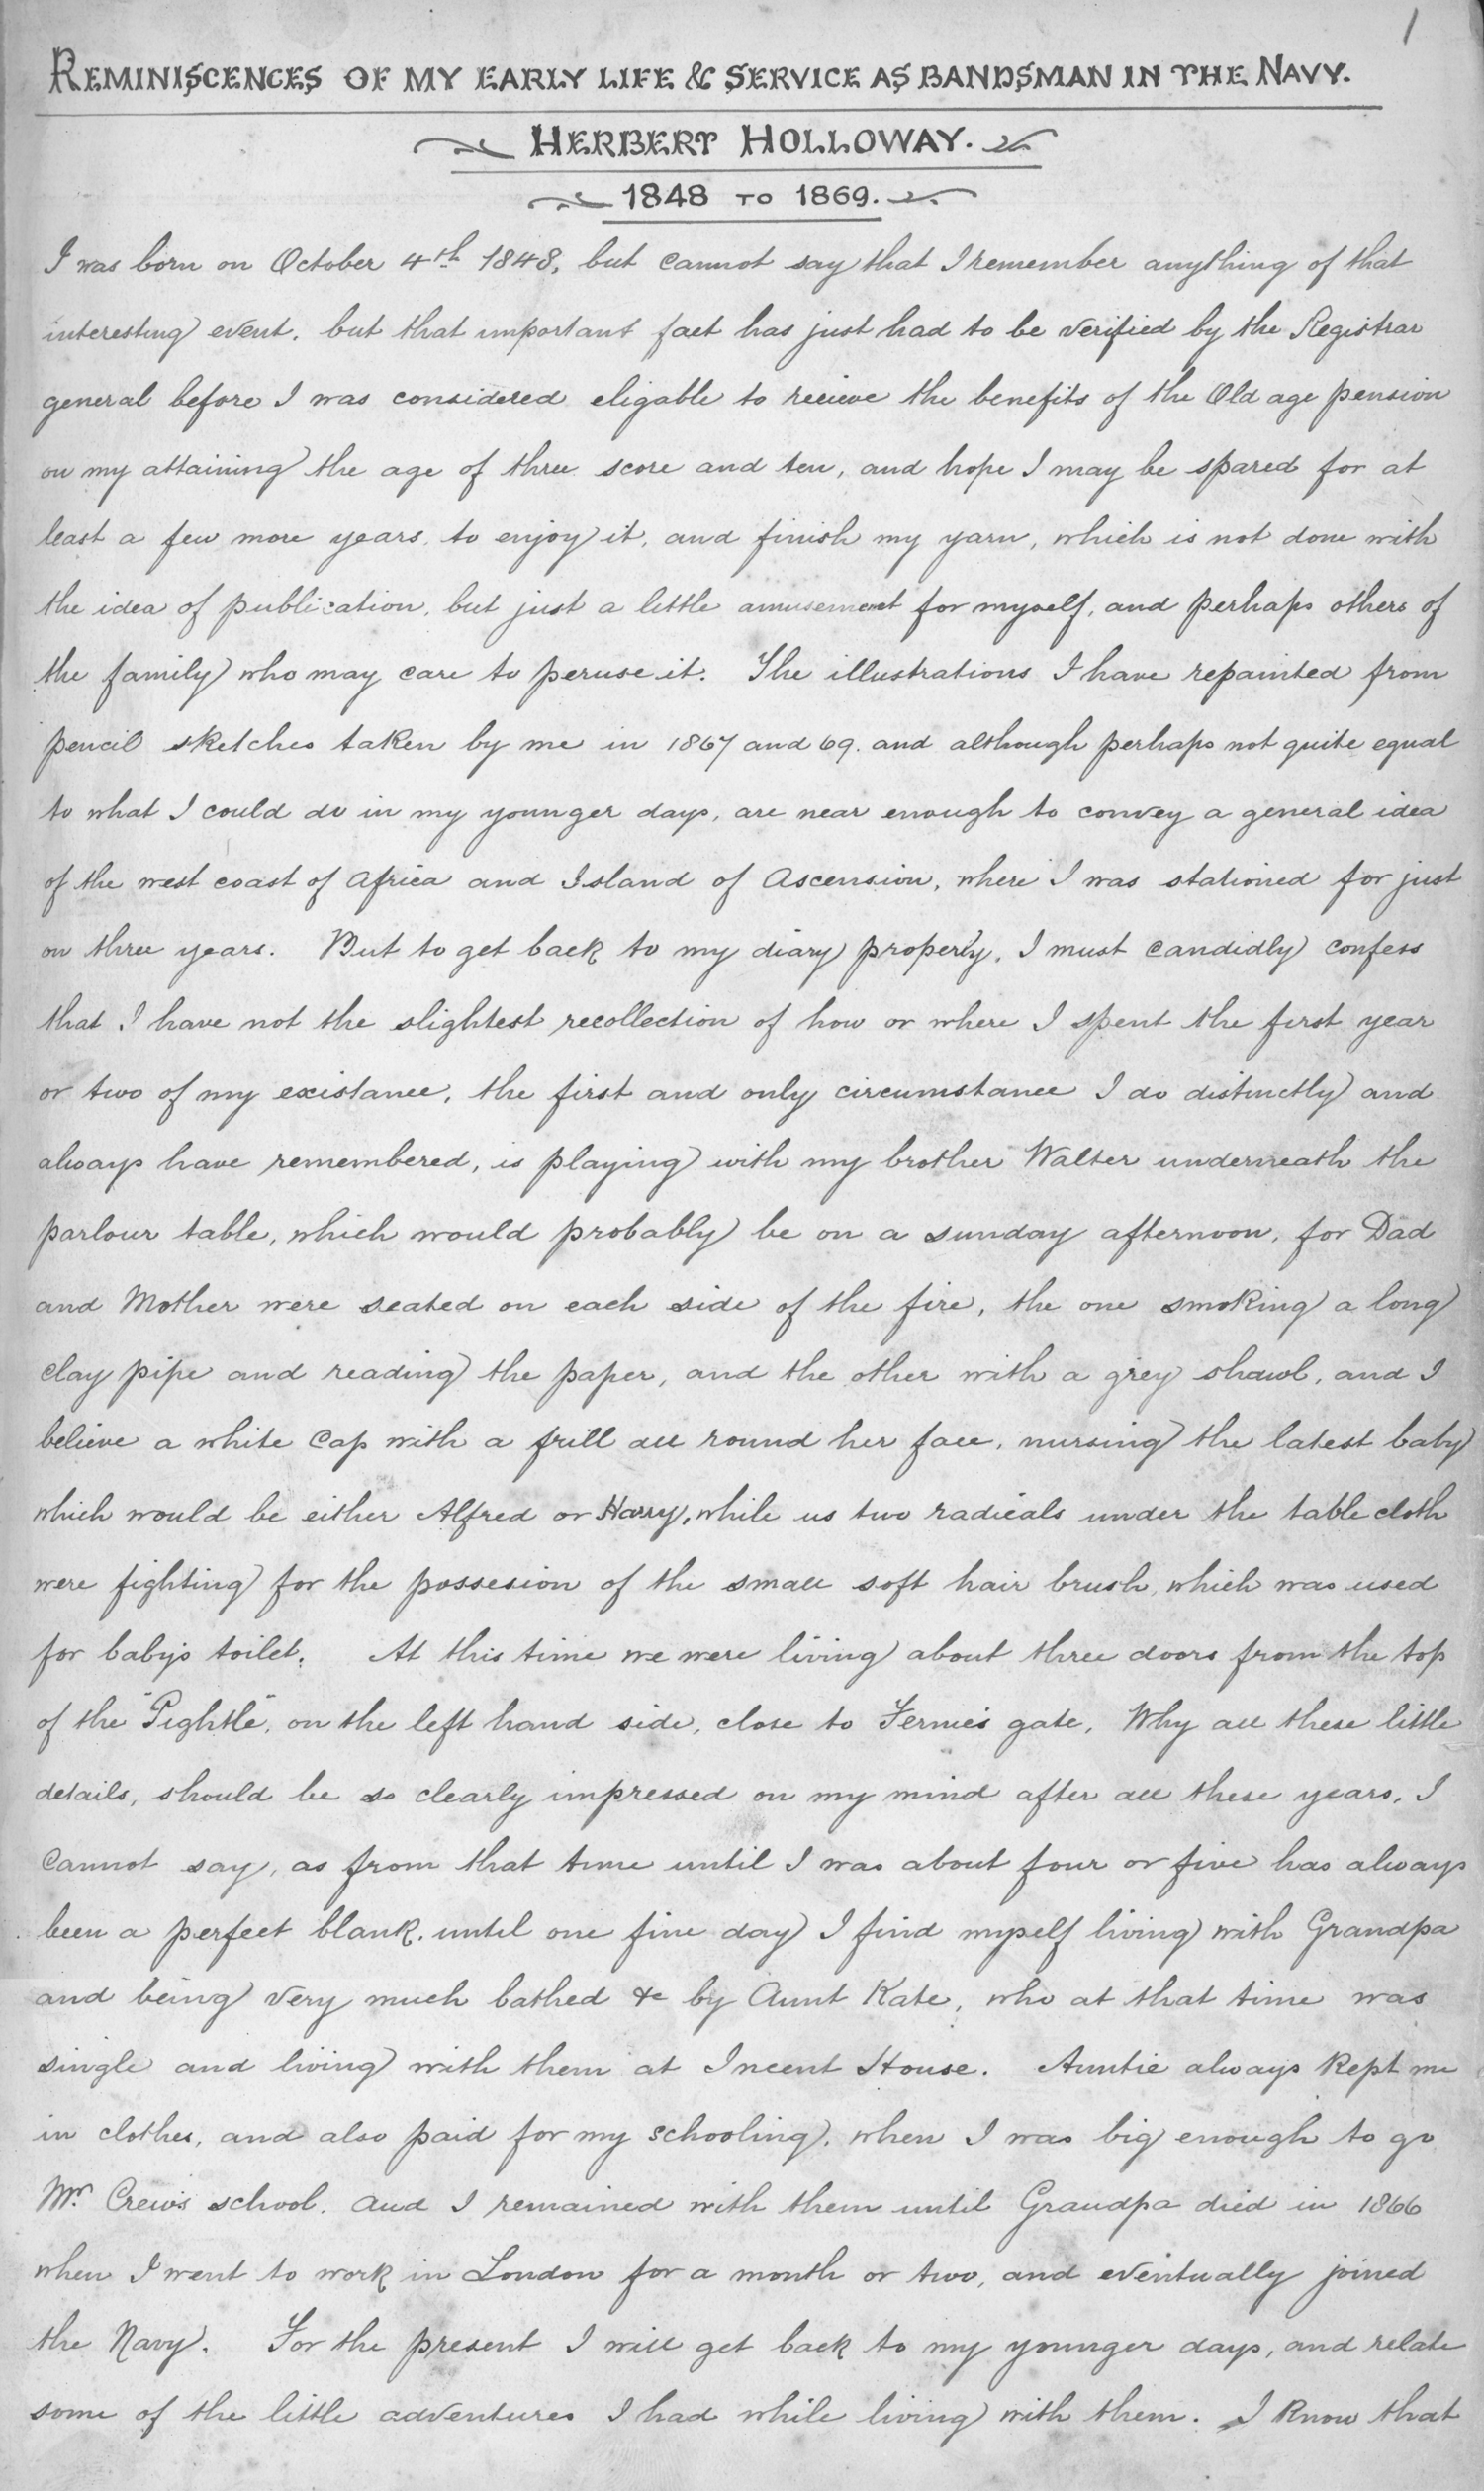 1
REMINISCENCES OF MY EARLY LIFE & SERVICE AS BANDSMAN IN THE NAVY.
HERBERT HOLLOWAY.
1848 TO 1869.
I was born on October 4th 1848, but cannot say that I remember anything of that
interesting event, but that important fact has just had to be verified by the Registrar
general before I was considered eligable to recieve the benefits of the Old age pension
on my attaining the age of three score and ten, and hope I may be spared for at
least a few more years, to enjoy it, and finish my yarn, which is not done with
the idea of publication, but just a little amusement for myself, and perhaps others of
the family who may care to peruse it. The illustrations I have repainted from
pencil sketches taken by me in 1867 and 69. and although perhaps not quite equal
to what I could do in my younger days, are near enough to convey a general idea
of the west coast of Africa and Island of Ascension, where I was stationed for just
on three years. But to get back to my diary properly, I must candidly confess
that I have not the slightest recollection of how or where I spent the first year
or two of my existance, the first and only circumstance I do distinctly and
always have remembered, is playing with my brother Walter underneath the
parlour table, which would probably be on a sunday afternoon, for Dad
and Mother were seated on each side of the fire, the one smoking a long
clay pipe and reading the paper, and the other with a grey shawl, and I
believe a white cap with a frill all round her face, nursing the latest baby
which would be either Alfred or Harry, while us two radicals under the table cloth
were fighting for the possesion of the small soft hair brush, which was used
for baby's toilet. At this time we were living about three doors from the top
of the "Pightle", on the left hand side, close to Fernie's gate, Why all these little
details, should be so clearly impressed on my mind after all these years, I
cannot say, as from that time until I was about four or five has always
been a perfect blank, until one fine day I find myself living with Grandpa
and being very much bathed &c by Aunt Kate, who at that time was
single and living with them at Incent House. Auntie always kept me
in clothes, and also paid for my schooling, when I was big enough to go
Mr. Crew's school. and I remained with them until Grandpa died in 1866
when I went to work in London for a month or two, and eventually joined
the Navy. For the present I will get back to my younger days, and relate
some of the little adventures I had while living with them. I know that